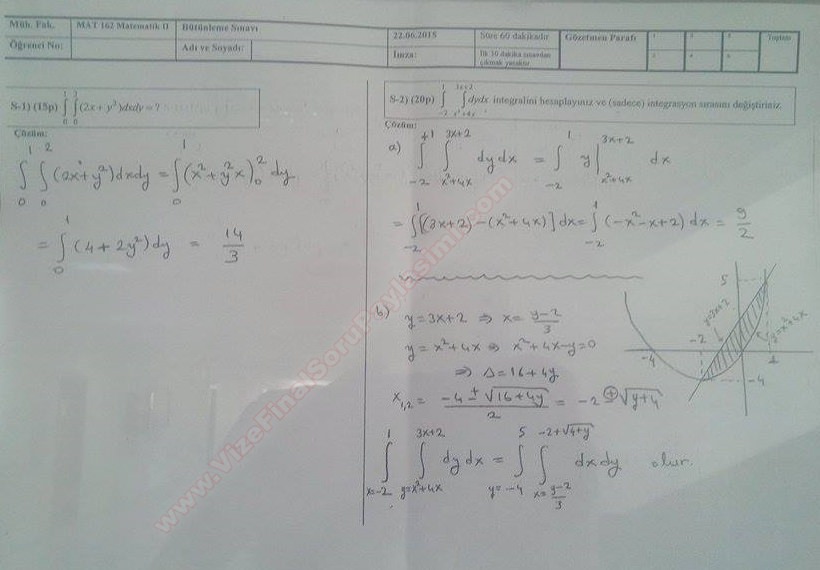 Müh. Fak. MAT 162 Matematik II Bütünleme Sınavı 22.06.2015 Süre 60 dakikadır Gözetmen Parafı 1 2 3 Toplam
Öğrenci No: Adı ve Soyadı: İmza: İlk 30 dakika sınavdan çıkmak yasaktır
S-1) (15p) ∫₀¹ ∫₀² (2x + y²)dxdy = ?
Çözüm:
∫₀¹ ∫₀² (2x+y²)dxdy = ∫₀¹ (x²+y²x)₀² dy
= ∫₀¹ (4+2y²)dy = 14/3
S-2) (20p) ∫₋₂¹ ∫_{x²+4x}^{3x+2} dydx integralini hesaplayınız ve (sadece) integrasyon sırasını değiştiriniz.
Çözüm:
a) ∫₋₂⁺¹ ∫_{x²+4x}^{3x+2} dydx = ∫₋₂¹ y|_{x²+4x}^{3x+2} dx
= ∫₋₂¹ [(3x+2)-(x²+4x)]dx = ∫₋₂¹ (-x²-x+2)dx = 9/2
b) y=3x+2 ⇒ x= (y-2)/3
y=x²+4x ⇒ x²+4x-y=0
⇒ Δ=16+4y
x₁,₂ = (-4±√(16+4y))/2 = -2⊕√(y+4)
∫_{x=-2}^{1} ∫_{y=x²+4x}^{3x+2} dydx = ∫_{y=-4}^{5} ∫_{x=(y-2)/3}^{-2+√(4+y)} dxdy olur.
5
y=3x+2
y=x²+4x
-4 -2 1
-4
www.VizeFinalSoruPaylasimi.com